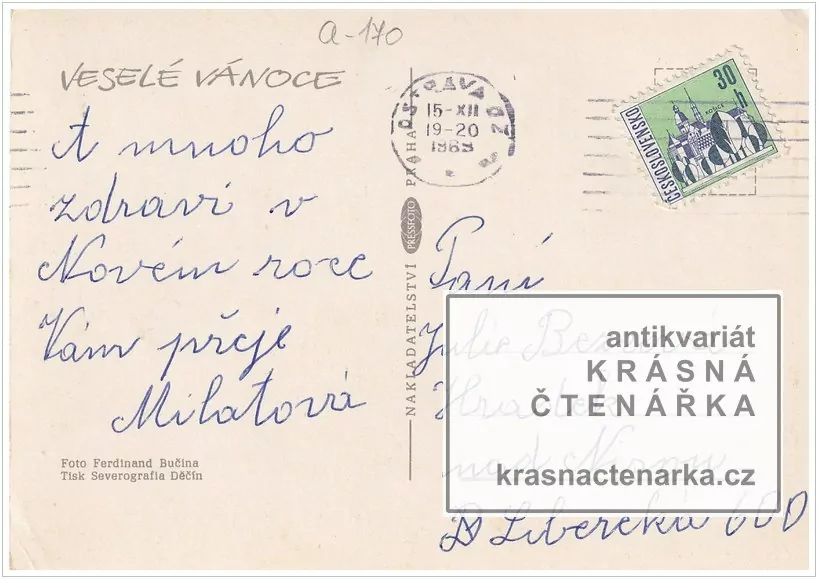 a-170
VESELÉ VÁNOCE
A mnoho
zdraví v
Novém roce
Vám přeje
Milatová
Foto Ferdinand Bučina
Tisk Severografia Děčín
NAKLADATELSTVÍ PRESSFOTO PRAHA
OSTRAVA 02
15-XII
19-20
1969
30 h
KOŠICE
ČESKOSLOVENSKO
Paní
Julie
nad
antikvariát
KRÁSNÁ
ČTENÁŘKA
krasnactenarka.cz